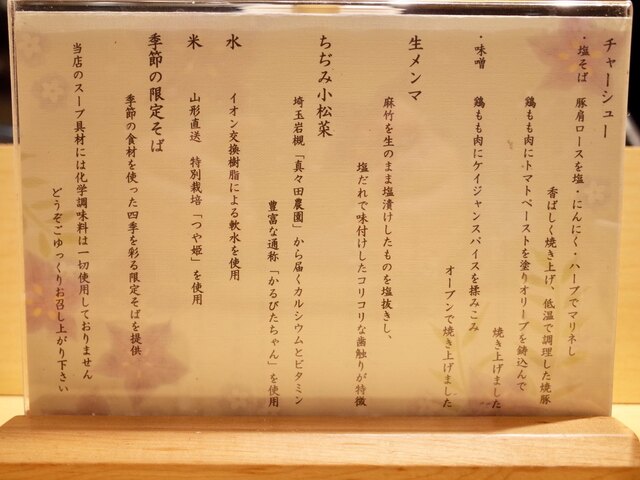 チャーシュー
・塩そば 豚肩ロースを塩・にんにく・ハーブでマリネし
香ばしく焼き上げ、低温で調理した焼豚
鶏もも肉にトマトペーストを塗りオリーブを鋳込んで
焼き上げました
・味噌 鶏もも肉にケイジャンスパイスを揉みこみ
オーブンで焼き上げました
生メンマ
麻竹を生のまま塩漬けしたものを塩抜きし、
塩だれで味付けしたコリコリな歯触りが特徴
ちぢみ小松菜
埼玉岩槻「真々田農園」から届くカルシウムとビタミン
豊富な通称「かるびたちゃん」を使用
水 イオン交換樹脂による軟水を使用
米 山形直送 特別栽培「つや姫」を使用
季節の限定そば
季節の食材を使った四季を彩る限定そばを提供
当店のスープ具材には化学調味料は一切使用しておりません
どうぞごゆっくりお召し上がり下さい